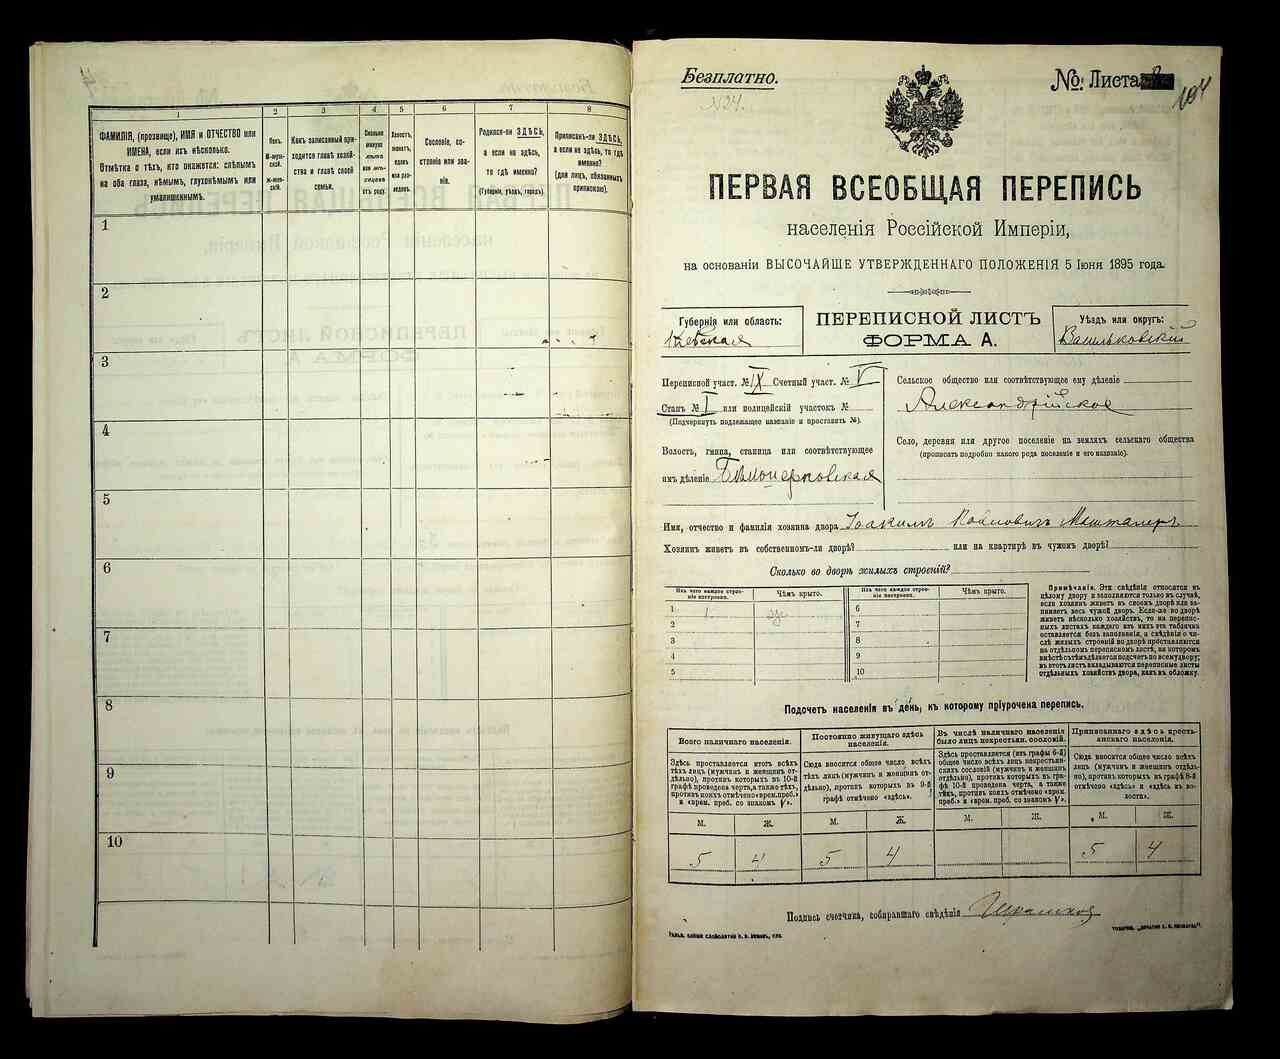 1
2
3
4
5
6
7
8
ФАМИЛІЯ, (прозвище), ИМЯ и ОТЧЕСТВО или
ИМЕНА, если ихъ нѣсколько.
Отмѣтка о тѣхъ, кто окажется: слѣпымъ
на оба глаза, нѣмымъ, глухонѣмымъ или
умалишеннымъ.
Полъ.
М-мужской.
Ж-женскій.
Какъ записанный приходится главѣ хозяйства и главѣ своей
семьи.
Сколько
минуло
лѣтъ
или мѣсяцевъ
отъ роду.
Холостъ,
женатъ,
вдовъ
или разведенъ.
Сословіе, состояніе или званіе.
Родился-ли ЗДѢСЬ,
а если не здѣсь,
то гдѣ именно?
(Губернія, уѣздъ, городъ).
Приписанъ-ли ЗДѢСЬ,
а если не здѣсь, то гдѣ
именно?
(для лицъ, обязанныхъ
припискою).
1
2
3
4
5
6
7
8
9
10
Безплатно.
N24.
№ Листа
104
ПЕРВАЯ ВСЕОБЩАЯ ПЕРЕПИСЬ
населенія Россійской Имперіи,
на основаніи ВЫСОЧАЙШЕ УТВЕРЖДЕННАГО ПОЛОЖЕНІЯ 5 Іюня 1895 года.
Губернія или область:
Кіевская
ПЕРЕПИСНОЙ ЛИСТЪ
ФОРМА А.
Уѣздъ или округъ:
Васильковскій
Переписной участ. № IX Счетный участ. № V
Станъ № I или полицейскій участокъ №
(Подчеркнуть подлежащее названіе и проставить №).
Волость, гмина, станица или соотвѣтствующее
имъ дѣленіе Бѣлоцерковская
Сельское общество или соотвѣтствующее ему дѣленіе
Александрійское
Село, деревня или другое поселеніе на земляхъ сельскаго общества
(прописать подробно какого рода поселеніе и его названіе).
Имя, отчество и фамилія хозяина двора Іоакимъ Павловичъ Машталеръ
Хозяинъ живетъ въ собственномъ-ли дворѣ? или на квартирѣ въ чужомъ дворѣ?
Сколько во дворѣ жилыхъ строеній?
Изъ чего каждое строеніе построено.
Чѣмъ крыто.
Изъ чего каждое строеніе построено.
Чѣмъ крыто.
1
2
3
4
5
6
7
8
9
10
Примѣчаніе. Эти свѣдѣнія относятся къ
цѣлому двору и заполняются только въ случаѣ,
если хозяинъ живетъ въ своемъ дворѣ или занимаетъ весь чужой дворъ. Если-же во дворѣ
живетъ нѣсколько хозяйствъ, то на переписныхъ листахъ каждаго изъ нихъ эта табличка
оставляется безъ заполненія, а свѣдѣнія о числѣ жилыхъ строеній во дворѣ проставляются
на отдѣльномъ переписномъ листѣ, на которомъ
вмѣстѣ съ тѣмъ дѣлается подсчетъ по всему двору;
въ этотъ листъ вкладываются переписные листы
отдѣльныхъ хозяйствъ двора, какъ въ обложку.
Подсчетъ населенія въ день, къ которому пріурочена перепись.
Всего наличнаго населенія.
Постоянно живущаго здѣсь
населенія.
Въ числѣ наличнаго населенія
было лицъ некрестьян. сословій.
Приписаннаго здѣсь крестьянскаго населенія.
Здѣсь проставляется итогъ всѣхъ
тѣхъ лицъ (мужчинъ и женщинъ отдѣльно), противъ которыхъ въ 10-й
графѣ проведена черта, а также тѣхъ,
противъ коихъ отмѣчено «врем. преб.»
и «врем. преб. со знакомъ V».
Сюда вносится общее число всѣхъ
тѣхъ лицъ (мужчинъ и женщинъ отдѣльно), противъ которыхъ въ 9-й
графѣ отмѣчено «здѣсь».
Здѣсь проставляется (изъ графы 6-й)
общее число всѣхъ лицъ некрестьянскихъ сословій (мужчинъ и женщинъ
отдѣльно), противъ которыхъ въ графѣ 10-й проведена черта, а также
тѣхъ, противъ коихъ отмѣчено «врем.
преб.» и «врем. преб. со знакомъ V».
Сюда вносится общее число всѣхъ
лицъ (мужчинъ и женщинъ отдѣльно), противъ которыхъ въ графѣ 8-й
отмѣчено «здѣсь» и «здѣсь въ волости».
М. Ж. М. Ж. М. Ж. М. Ж.
5 4 5 4 5 4
Подпись счетчика, собиравшаго свѣдѣнія